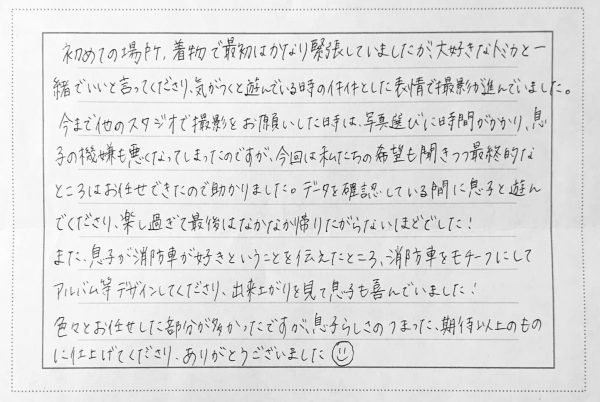 初めての場所、着物で最初はかなり緊張していましたが、大好きなトミカと一
緒でいいと言ってくださり、気がつくと遊んでいる時の件件とした表情で撮影が進んでいました。
今まで他のスタジオで撮影をお願いした時は、写真選びに時間がかかり、息
子の機嫌も悪くなってしまったのですが、今回は私たちの希望も聞きつつ最終的な
ところはお任せできたので助かりました。データを確認している間に息子と遊ん
でくださり、楽し過ぎて最後はなかなか帰りたがらないほどでした！
また、息子が消防車が好きということを伝えたところ、消防車をモチーフにして
アルバム等デザインしてくださり、出来上がりを見て息子も喜んでいました！
色々とお任せした部分が多かったですが、息子らしさのつまった、期待以上のもの
に仕上げてくださり、ありがとうございました☺